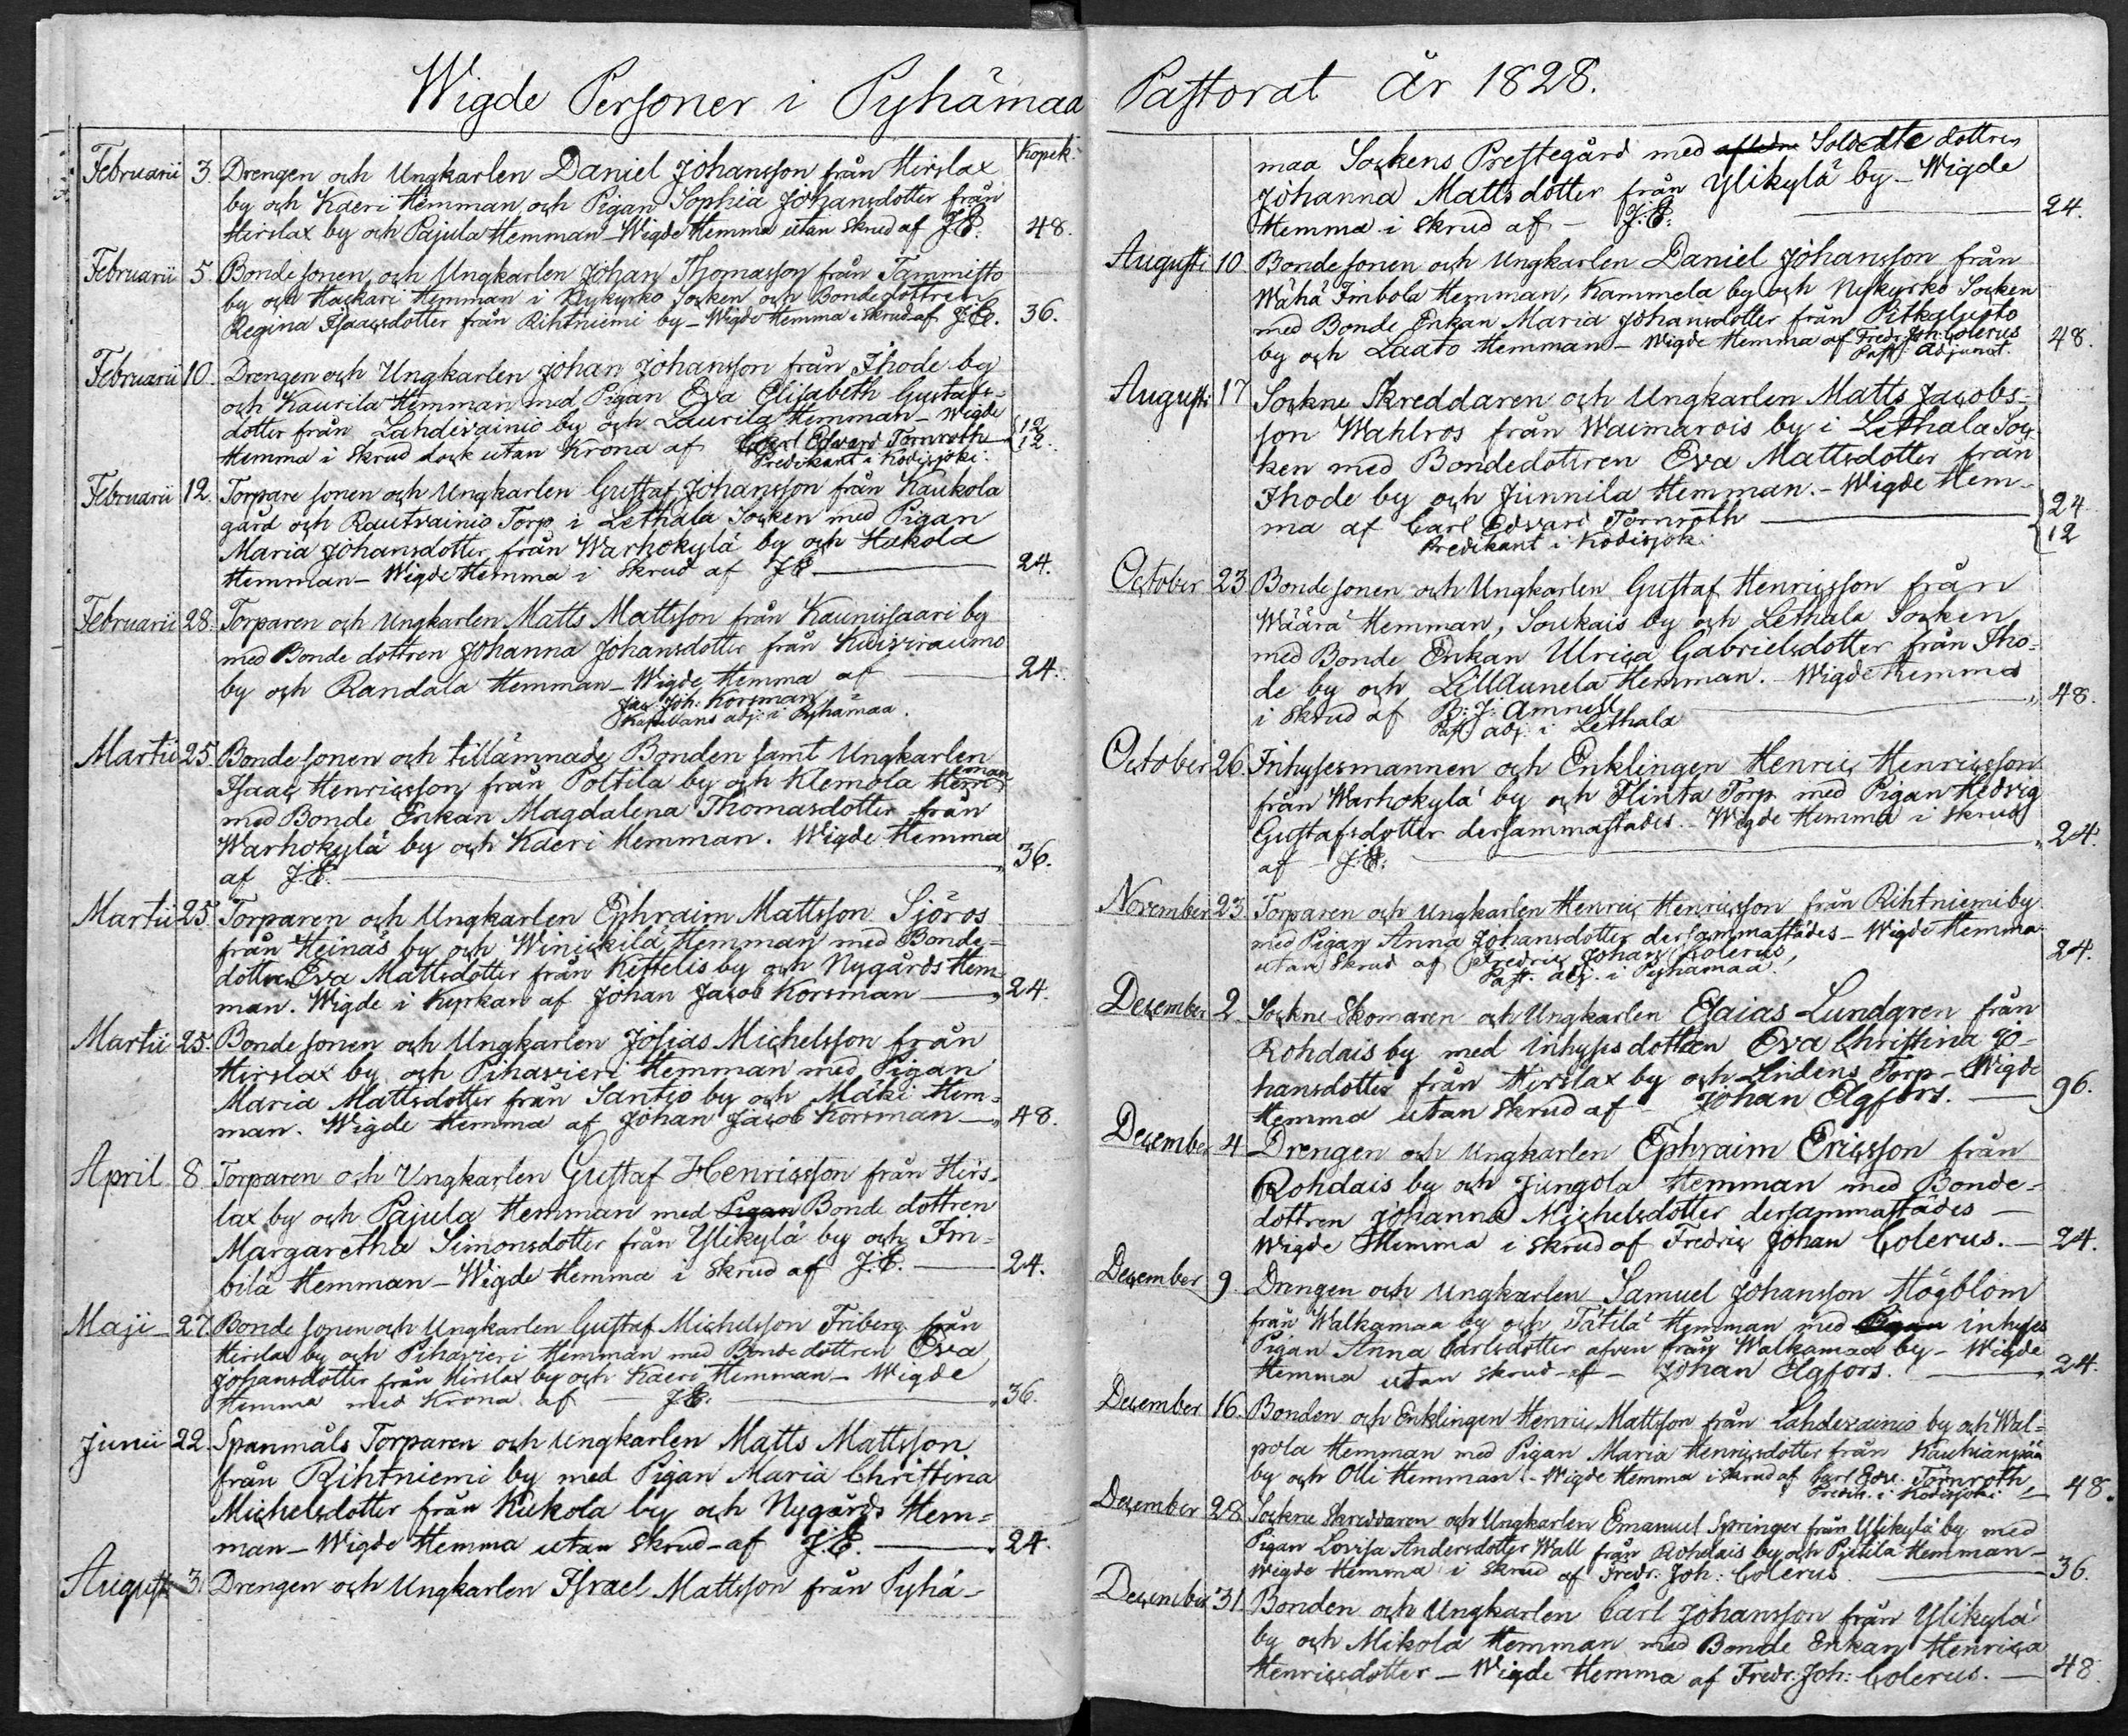 Wigde Personer i Pyhämaa Pastorat År 1828.
Kopek:
Februarii 3. Drengen och Ungkarlen Daniel Johansson från Hirslax
by och Kaeri Hemman, och Pigan Sophia Johansdotter från
Hirslax by och Pajula Hemman – Wigde Hemma utan Skrud af J.E. 48.
Februarii 5. Bonde sonen och Ungkarlen Johan Thomasson från Tammisto
by och Hackari Hemman i Nykyrko Socken och Bondedottren
Regina Isaacsdotter från Rihtniemi by – Wigde Hemma i Skrud af J.E. 36.
Februarii 10. Drengen och Ungkarlen Johan Johansson från Ihode by
och Kaurila Hemman med Pigan Eva Elisabeth Gustafs=
dotter från Lahdevainio by och Laurila Hemman – Wigde 12
Hemma i Skrud dock utan Krona af Carl Edvard Tornroth 12.
Predikant i Kodisjoki.
Februarii 12. Torpare sonen och Ungkarlen Gustaf Johansson från Kaukola
gård och Rautvainio Torp i Lethala Socken med Pigan
Maria Johansdotter från Warhokylä by och Hakola
Hemman – Wigde Hemma i Skrud af J.E 24.
Februarii 28. Torparen och Ungkarlen Matts Mattsson från Kaunissaari by
med Bonde dottren Johanna Johansdotter från Kuiviraumo
by och Randala Hemman – Wigde Hemma af 24.
Jac. Joh: Korsman
Kapellans adj: i Pyhämaa.
Martii 25. Bonde sonen och tillämnade Bonden samt Ungkarlen
Isaac Henricsson från Poltila by och Klemola Hemman
med Bonde Enkan Magdalena Thomasdotter från
Warhokylä by och Kaeri Hemman. Wigde Hemma
af J.E. 36.
Martii 25. Torparen och Ungkarlen Ephraim Mattsson Sjöros
från Heinäs by och Winickilä Hemman med Bonde=
dottren Eva Mattsdotter från Kettelis by och Nygårds Hem=
man. Wigde i Kyrkan af Johan Jacob Korsman 24.
Martii 25. Bonde sonen och Ungkarlen Josias Michelsson från
Hirslax by och Pihavieri Hemman med Pigan
Maria Mattsdotter från Santjo by och Mäki Hem=
man. Wigde Hemma af Johan Jacob Korsman 48.
April 8 Torparen och Ungkarlen Gustaf Henricsson från Hirs=
lax by och Pajula Hemman med Pigan Bonde dottren
Margaretha Simonsdotter från Ylikylä by och Im=
bilä Hemman – Wigde Hemma i Skrud af J.E. 24.
Maji 27. Bonde sonen och Ungkarlen Gustaf Michelsson Friberg från
Hirslax by och Pihavieri Hemman med Bonde dottren Eva
Johansdotter från Hirslax by och Kaeri Hemman – Wigde
Hemma med Krona af J.E. 36.
Junii 22. Spanmåls Torparen och Ungkarlen Matts Mattsson
från Rihtniemi by med Pigan Maria Christina
Michelsdotter från Kukola by och Nygårds Hem=
man – Wigde Hemma utan Skrud – af J.E. 24.
Augusti 3. Drengen och Ungkarlen Israel Mattsson från Pyhä=
maa Sockens Prestegård med Soldate dottren
Johanna Mattsdotter från Ylikylä by – Wigde
Hemma i Skrud af – J.E. 24.
Augusti 10 Bonde sonen och Ungkarlen Daniel Johansson från
Wähä Imbola Hemman, Kammela by och Nykyrko Socken
med Bonde Enkan Maria Johansdotter från Pitkaluoto
by och Laato Hemman – Wigde Hemma af Fredr. Joh: Colerus 48.
Past. Adjunct.
Augusti 17 Sockne Skreddaren och Ungkarlen Matts Jacobs=
son Wahlros från Waimarois by i Lethala Soc
ken med Bondedottren Eva Mattsdotter från
Ihode by och Junnila Hemman. – Wigde Hem=
ma af Carl Edvard Tornroth 24
Predikant i Kodisjoki 12
October 23 Bonde sonen och Ungkarlen Gustaf Henricsson från
Wäärä Hemman, Soukais by och Lethala Socken
med Bonde Enkan Ulrica Gabrielsdotter från Iho=
de by och LillAunela Hemman. – Wigde Hemma
i Skrud af B: J: Amnell 48.
Past adj: i Lethala
October 26. Inhysesmannen och Enklingen Henric Henricsson
från Warhokylä by och Flinta Torp med Pigan Hedvig
Gustafsdotter dersammastädes – Wigde Hemma i Skrud
af J.E: 24.
November 23. Torparen och Ungkarlen Henric Henricsson från Rihtniemi by
med Pigan Anna Johansdotter dersammastädes – Wigde Hemma
utan Skrud af Fredric Johan Colerus, 24.
Past. adj. i Pyhämaa.
December 2. Sockne Skomaren och Ungkarlen Esaias Lundgren från
Rohdais by med inhyses dottren Eva Christina Jo=
hansdotter från Hirslax by och Lindens Torp – Wigde
Hemma utan Skrud af Johan Elgfors. 96.
December 4 Drengen och Ungkarlen Ephraim Ericsson från
Rohdais by och Jungola Hemman med Bonde=
dottren Johanna Michelsdotter dersammastädes –
Wigde Hemma i Skrud af Fredric Johan Colerus. 24.
December 9. Drengen och Ungkarlen Samuel Johansson Högblom
från Walkamaa by och Tätilä Hemman med Pigan inhyses
Pigan Anna Carlsdotter afven från Walkamaa by – Wigde
Hemma utan Skrud – af – Johan Elgfors. 24.
December 16. Bonden och Enklingen Henric Mattsson från Lahdevainio by och Wal=
pola Hemman med Pigan Maria Henricsdotter från Kauhianpää
by och Olli Hemman – Wigde Hemma i Skrud af Carl Edv. Törnroth 48.
Predik. i Kodisjoki
December 28. Sockne Skreddaren och Ungkarlen Emanuel Springer från Ylikylä by med
Pigan Lovisa Andersdotter Wall från Rohdais by och Pjetilä Hemman –
Wigde Hemma i Skrud af Fredr. Joh: Colerus 36.
December 31. Bonden och Ungkarlen Carl Johansson från Ylikylä
by och Mikola Hemman med Bonde Enkan Henrica
Henricsdotter – Wigde Hemma af Fredr. Joh: Colerus. 48.